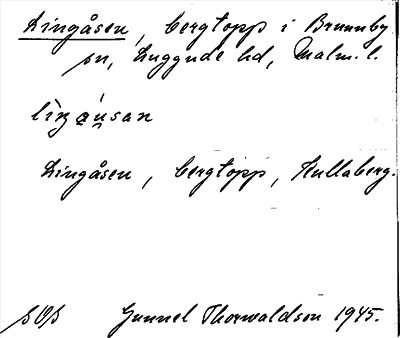 Lingåsen, bergtopp i Brunnby
sn, Luggude hd, Malm. l.
Lingåsen, bergtopp, Kullaberg.
Gunnel Thorwaldson 1945.